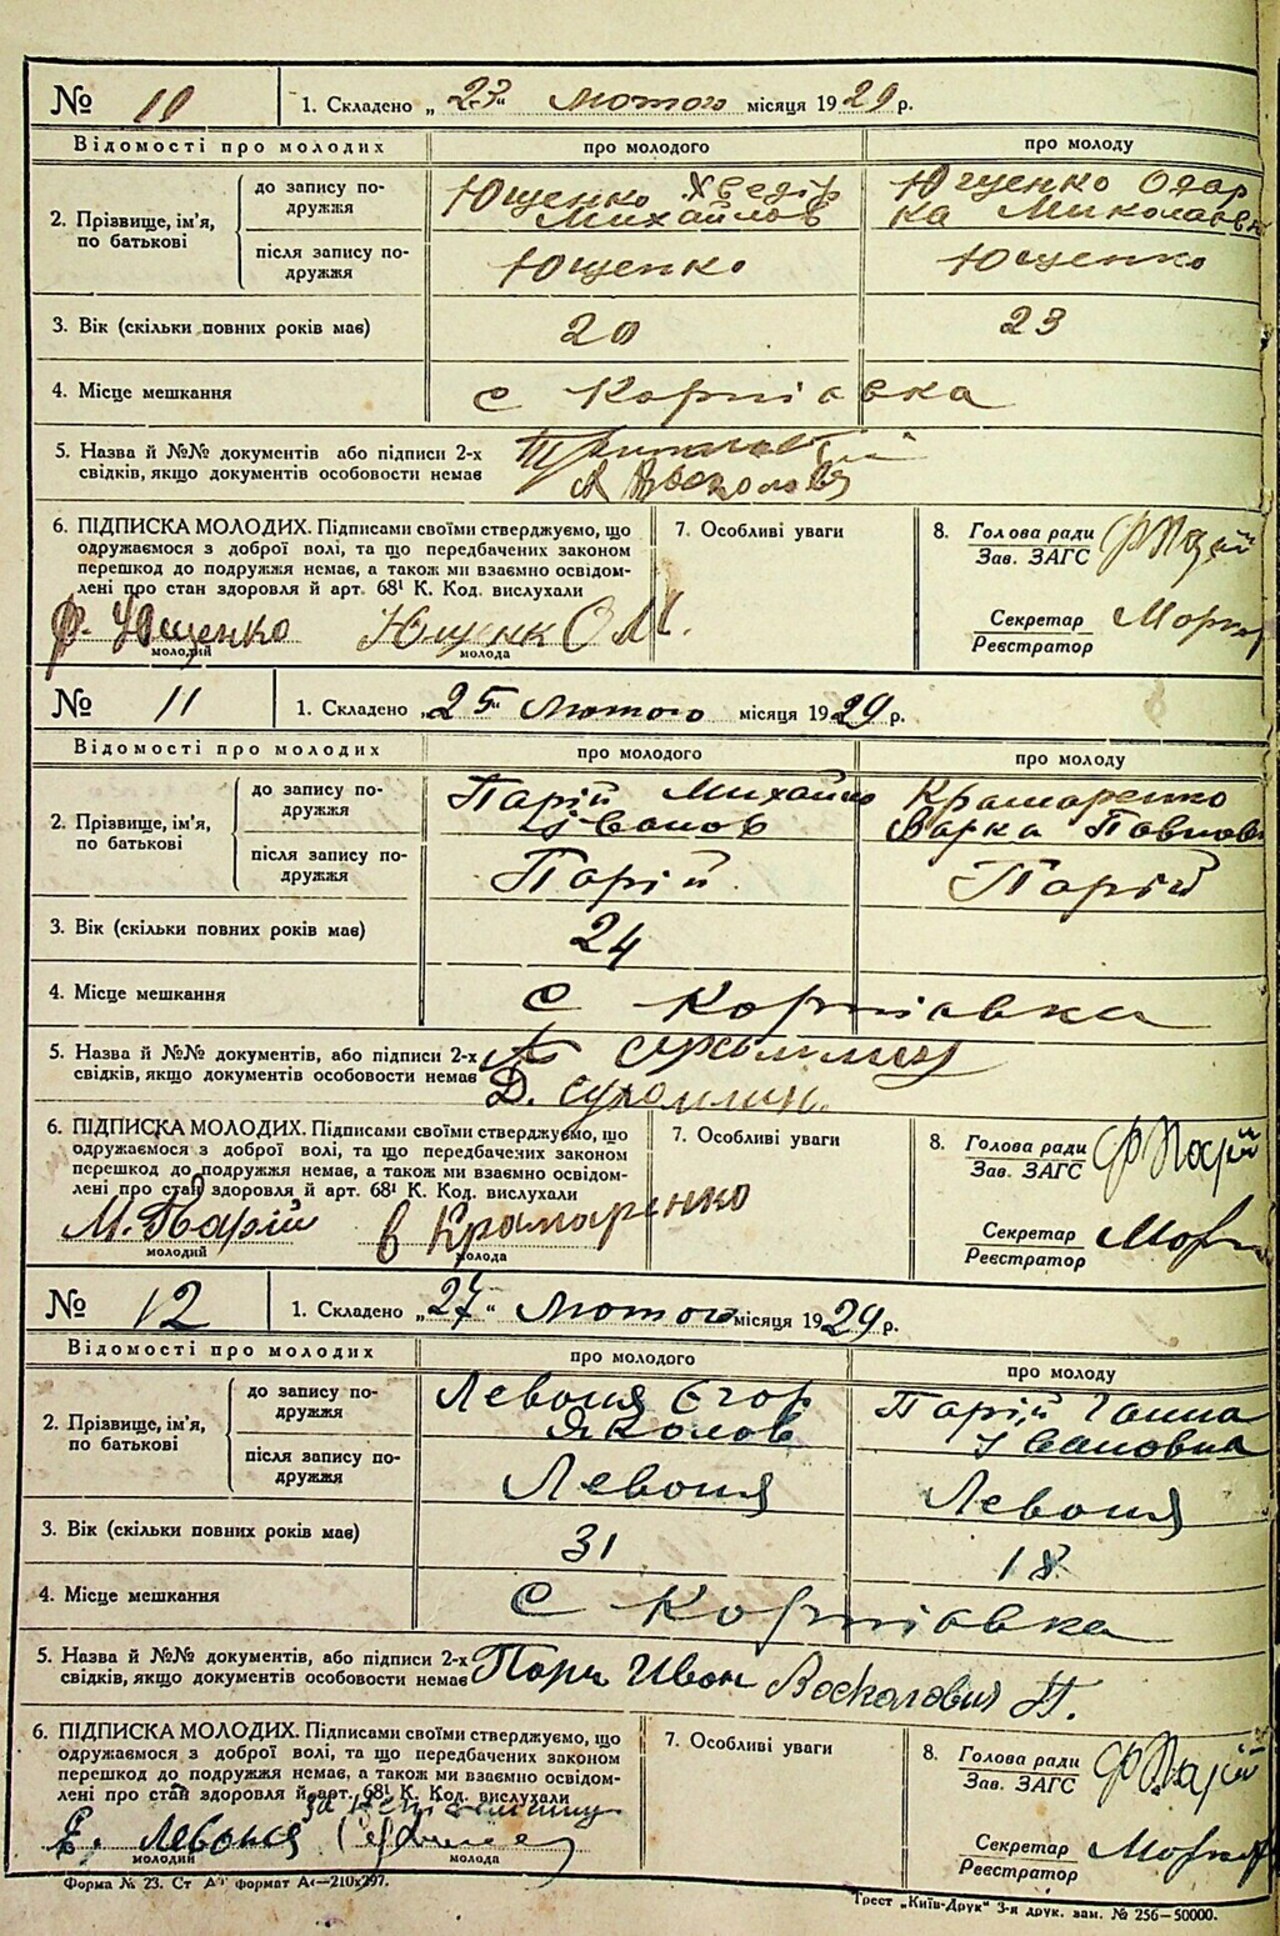 № 10 1. Складено „23“ Лютого місяця 1929 р.
Відомості про молодих про молодого про молоду
2. Прізвище, ім'я, по батькові
до запису по-
дружжя
Ющенко Хведір
Михайлов
Ющенко Одар
ка Миколаєвн
після запису по-
дружжя
Ющенко Ющенко
3. Вік (скільки повних років має) 20 23
4. Місце мешкання с Корніавка
5. Назва й №№ документів або підписи 2-х
свідків, якщо документів особовости немає
6. ПІДПИСКА МОЛОДИХ. Підписами своїми стверджуємо, що
одружаємося з доброї волі, та що передбачених законом
перешкод до подружжя немає, а також ми взаємно освідом-
лені про стан здоровля й арт. 68¹ К. Код. вислухали
Ф. Ющенко Ющенк О М.
молодий молода
7. Особливі уваги
8. Голова ради Ф Парій
Зав. ЗАГС
Секретар
Реєстратор
№ 11 1. Складено „25“ Лютого місяця 1929 р.
Відомості про молодих про молодого про молоду
2. Прізвище, ім'я,
по батькові
до запису по-
дружжя
Парій Михайло
Іванов
Крамаренко
Варка Павловн
після запису по-
дружжя
Парій Парій
3. Вік (скільки повних років має) 24
4. Місце мешкання с Корніавка
5. Назва й №№ документів, або підписи 2-х
свідків, якщо документів особовости немає
Д. Сухомлин.
6. ПІДПИСКА МОЛОДИХ. Підписами своїми стверджуємо, що
одружаємося з доброї волі, та що передбачених законом
перешкод до подружжя немає, а також ми взаємно освідом-
лені про стан здоровля й арт. 68¹ К. Код. вислухали
М. Парій В Крамаренко
молодий молода
7. Особливі уваги
8. Голова ради Ф Парій
Зав. ЗАГС
Секретар
Реєстратор
№ 12 1. Складено „27“ Лютого місяця 1929 р.
Відомості про молодих про молодого про молоду
2. Прізвище, ім'я,
по батькові
до запису по-
дружжя
Левоня Єгор
Яколов
Парій Ганна
Івановна
після запису по-
дружжя
Левоня Левоня
3. Вік (скільки повних років має) 31 18
4. Місце мешкання с Корніавка
5. Назва й №№ документів, або підписи 2-х
свідків, якщо документів особовости немає
Пори Ивон Восколовия П.
6. ПІДПИСКА МОЛОДИХ. Підписами своїми стверджуємо, що
одружаємося з доброї волі, та що передбачених законом
перешкод до подружжя немає, а також ми взаємно освідом-
лені про стан здоровля й арт. 68¹ К. Код. вислухали
Е. Левоня
молодий молода
7. Особливі уваги
8. Голова ради Ф Парій
Зав. ЗАГС
Секретар
Реєстратор
Форма № 23. Ст А⁴ формат А₄—210х297.
Трест „Київ-Друк“ 3-я друк. зам. № 256—50000.